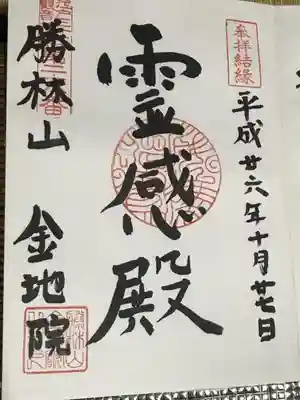 奉拝結縁
平成廿六年十月廿七日
靈感殿
勝林山 金地院